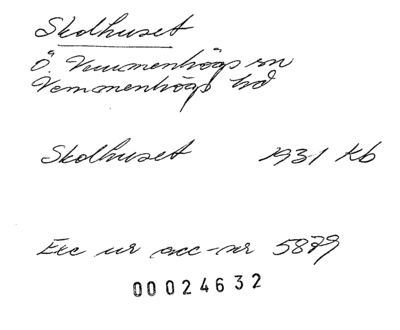 Skolhuset
Ö. Vemmenhögs sn
Vemmenhögs hd
Skolhuset 1931 Kb
Exc ur acc-nr 5879
00024632